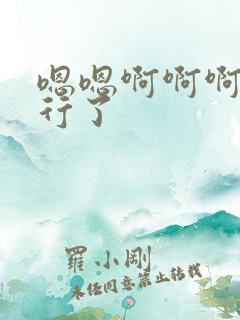 嗯嗯啊啊啊
行了
羅小剛
未经同意禁止转载